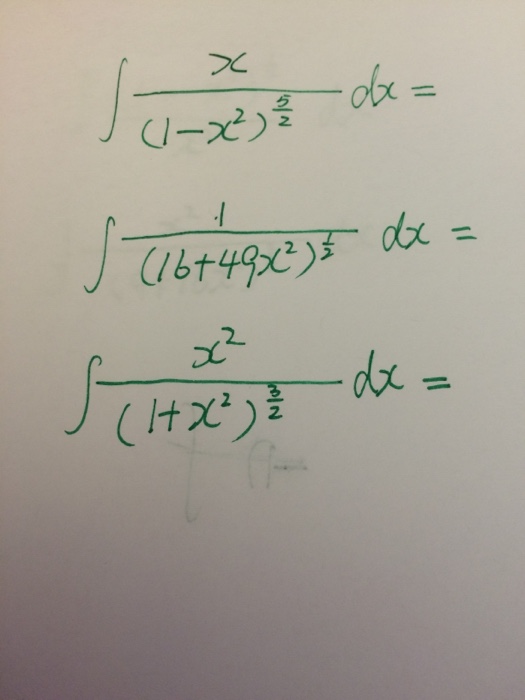 ∫ x / (1-x²)^(5/2) dx =
∫ 1 / (16+49x²)^(1/2) dx =
∫ x² / (1+x²)^(3/2) dx =